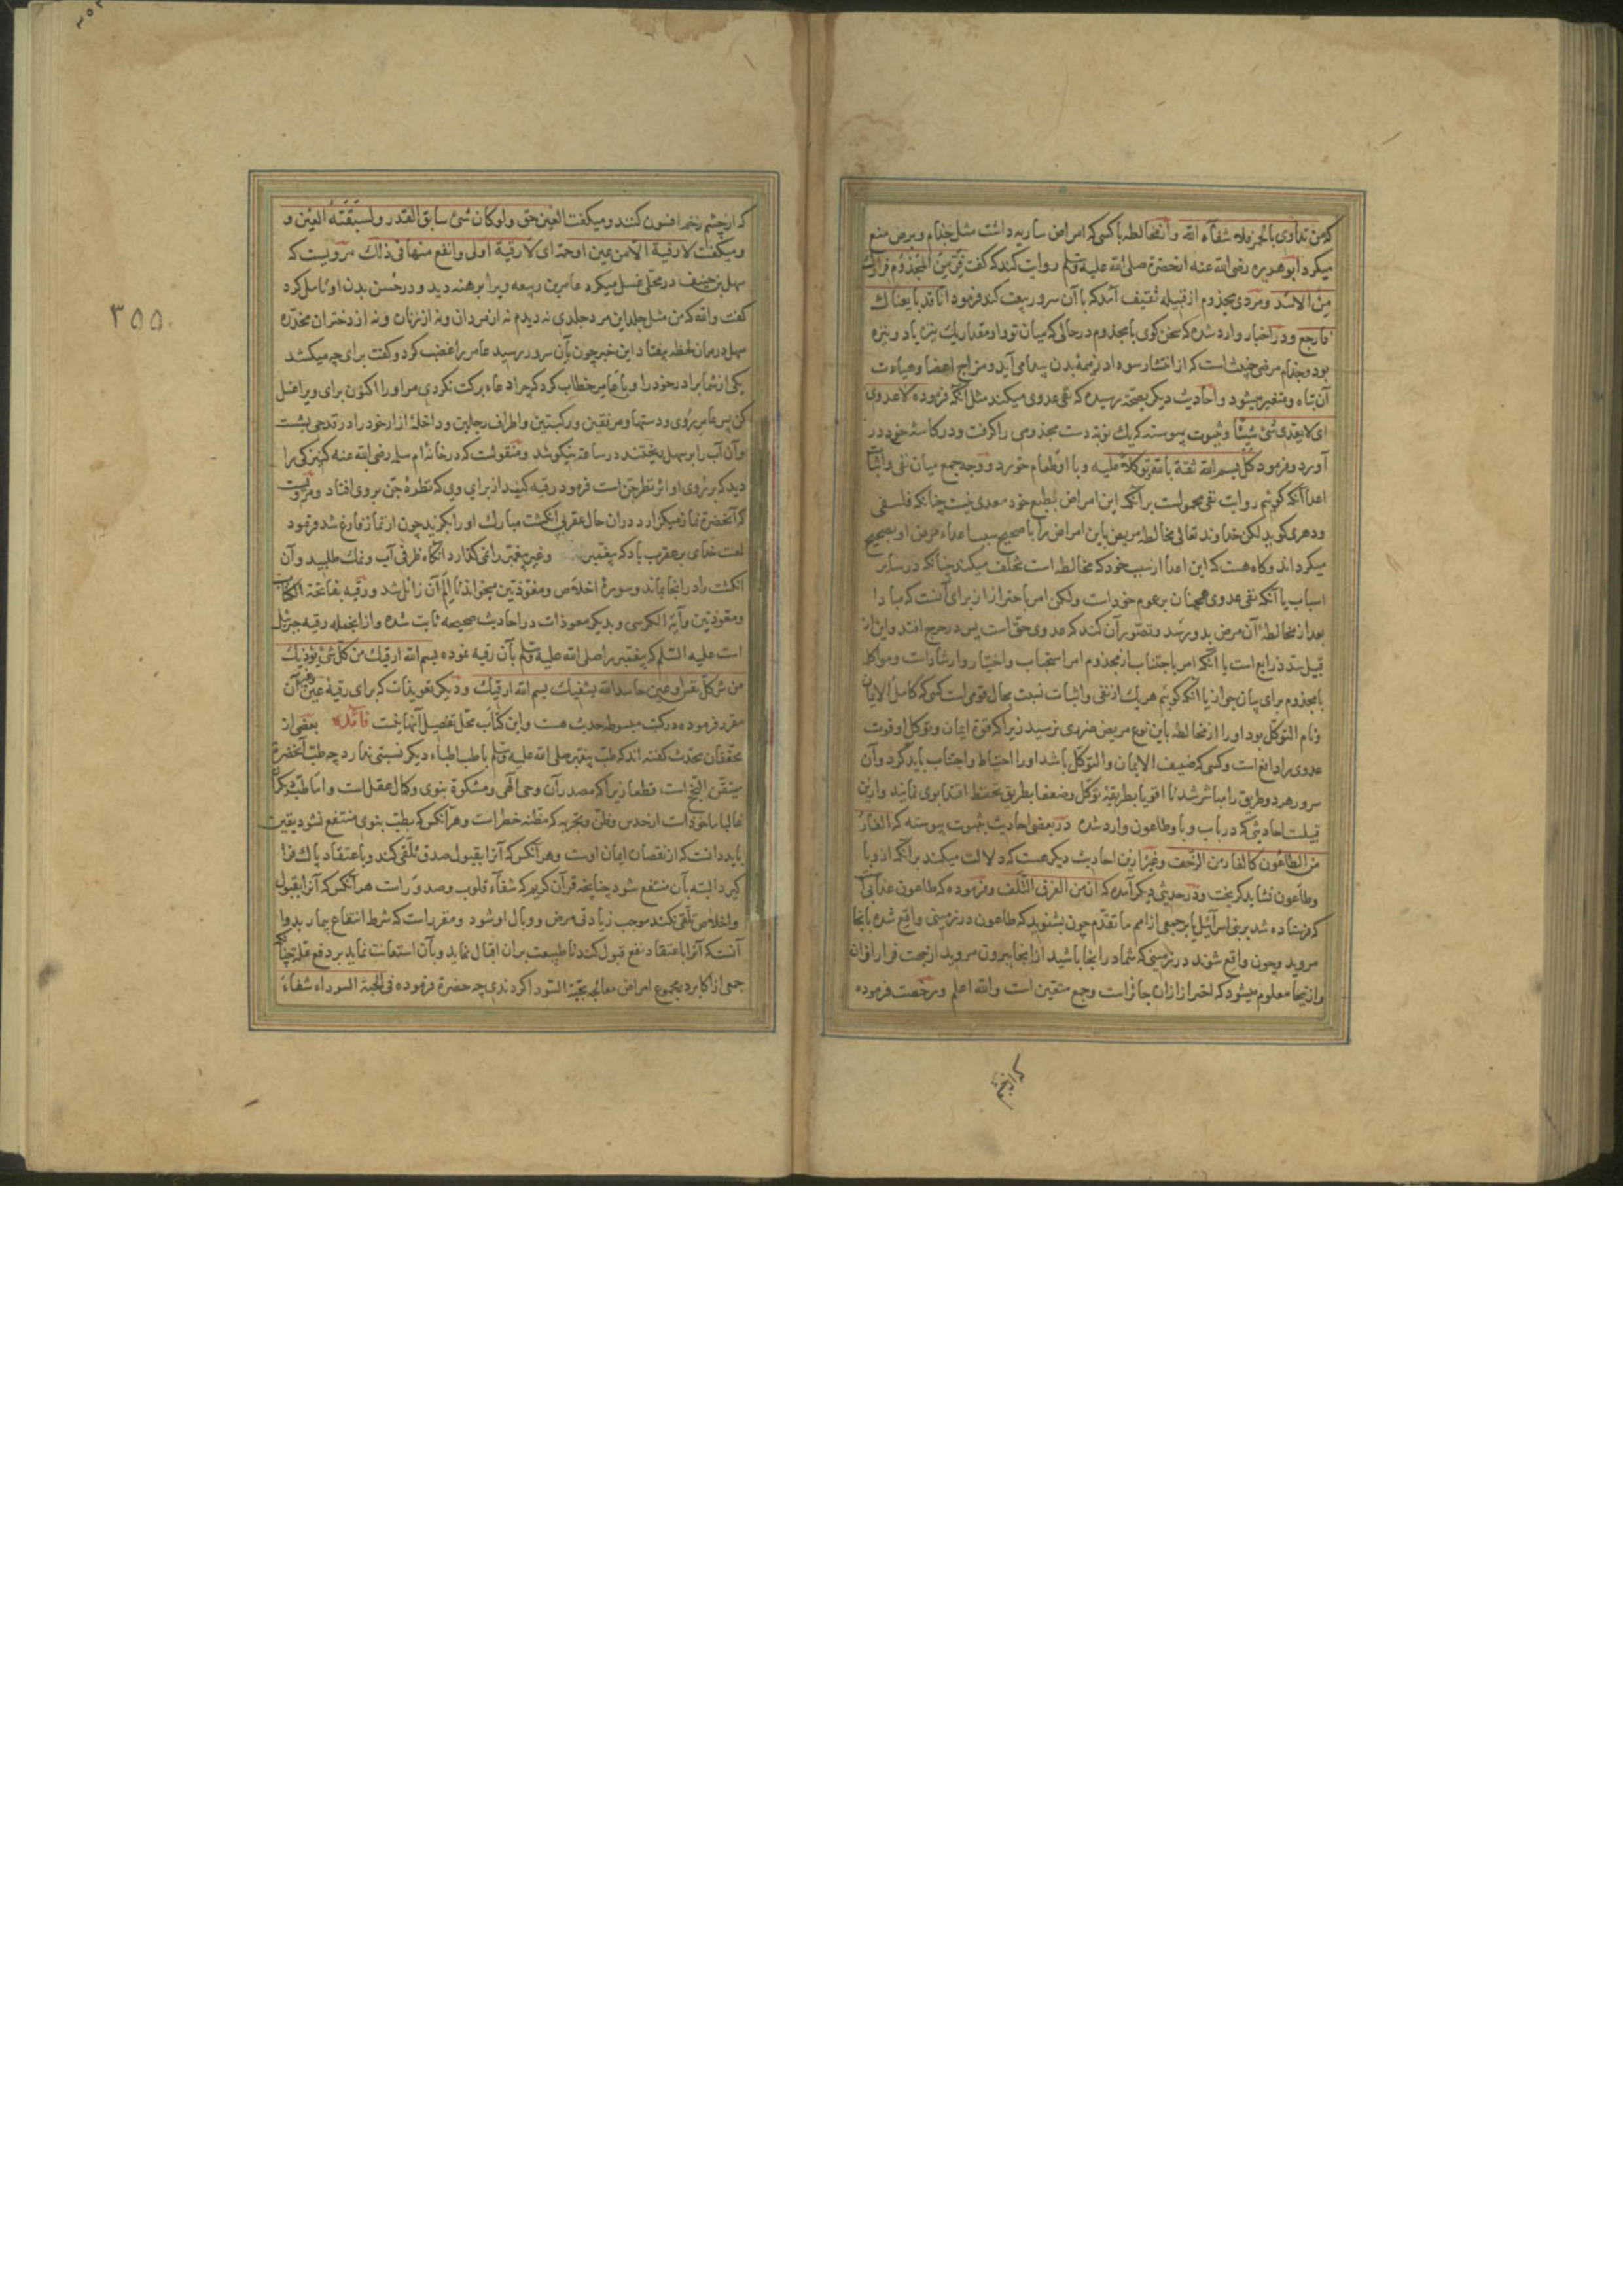 که من تداوی بالخمر فلا شفاه الله و از مخالطه با کسی که امراض ساریه داشت مثل جذام و برص منع
میکرد ابو هریره رضی الله عنه از حضرة صلی الله علیه وسلم روایت کند که گفت فر من المجذوم فرارک
من الاسد و مردی مجذوم از قبیله ثقیف آمد که با آن سرور بیعت کند فرمود انا قد بایعناک
فارجع و در اخبار وارد شده که سخن کوی با مجذوم در حالی که میان تو و او مقدار یک نیزه یا دو نیزه
بود و جذام مرضی خبیث است که از انتشار سودا در همه بدن پیدا می آید و مزاج اعضا و هیات
آن تباه و متغیر میشود و احادیث دیکر بصحت رسیده که نفی عدوی میکند مثل آنکه فرموده لا عدوی
ای لا یعدی شئ شیئا و بثبوت پیوسته که یک نوبة دست مجذومی را کرفت و در کاسه خود در
آورد و فرمود کل بسم الله ثقة بالله و توکلا علیه و با او طعام خورد و وجه جمع میان نفی و اثبات
اعدا آنکه کوئیم روایت نفی محمولست بر آنکه این امراض بطبع خود معدی نیست چنانکه فلسفی
و دهری کوید لکن خداوند تعالی مخالطه مریض باین امراض را با صحیح سبب اعداء مرض او بصحیح
میکرداند و کاه هست که این اعدا از سبب خود که مخالطه است تخلف میکند چنانکه در سایر
اسباب یا آنکه نفی عدوی همچنان بر عموم خود است ولکن امر باحتراز از برای آنست که مبادا
بعد از مخالطه آن مرض بدو رسد و تصور آن کند که عدوی حق است پس در حرج افتد و این از
قبیل سد ذرایع است یا آنکه امر باجتناب از مجذوم امر استحباب و اختیار و ارشاد است و مواکله
با مجذوم برای بیان جواز یا آنکه کوئیم هر یک از نفی و اثبات نسبت بحال قومی است کسی که کامل الایمان
و تام التوکل بود او را از مخالطه باین نوع مریض ضرری نرسد زیرا که قوة ایمان و توکل او قوت
عدوی را دافع است و کسی که ضعیف الایمان والتوکل باشد او را احتیاط و اجتناب باید کرد و آن
سرور هر دو طریق را مباشر شد تا اقویا بطریقه توکل و ضعفا بطریق تحفظ اقتدا بوی نمایند و ازین
قبیلست احادیثی که در باب وبا و طاعون وارد شده در بعضی احادیث بثبوت پیوسته که الفار
من الطاعون کالفار من الزحف و غیر ازین احادیث دیکر هست که دلالت میکند بر آنکه از وبا
و طاعون نشاید کریخت و در حدیثی دیکر آمده که ان من القرف التلف و فرموده که طاعون عذابی است
که فرستاده شد بر بنی اسرائیل یا بر جمعی از امم ما تقدم چون بشنوید که طاعون در زمینی واقع شده بانجا
مروید و چون واقع شود در زمینی که شما در انجا باشید از انجا بیرون مروید از جهت فرار از ان
و ازینجا معلوم میشود که احتراز از ان جائز است وجمع متعین است والله اعلم و رخصت فرموده
که از چشم
که از چشم زخم افسون کنند و میکفت العین حق و لو کان شئ سابق القدر ولسبقته العین و
و میکفت لا رقیة الا من عین او حمة ای لا رقیة اولی وانفع منها فی ذلک مرویست که
سهل بن حنیف در محلی غسل میکرد عامر بن ربیعه ویرا برهنه دید و در حسن بدن او تامل کرد
گفت والله که من مثل جلد این مرد جلدی ندیدم نه از مردان و نه از زنان و نه از دختران مخدره
سهل در همان لحظه بیفتاد این خبر چون بآن سرور رسید عامر را غضب کرد و گفت برای چه میکشد
یکی از شما برادر خود را و با عامر خطاب کرد که چرا دعاء برکت نکردی مر او را اکنون برای ویرا غسل
کن پس عامر روی و دستها و مرفقین و رکبتین و اطراف رجلین و داخله ازار خود را در قدحی بشست
و آن آب را بر سهل ریختند در ساعة نیکو شد و منقولست که در خانه ام سلمه رضی الله عنه کنیزکی را
دید که بر روی او اثر نظر جن است فرمود رقیه کنید از برای وی که نظرهٔ جن بر وی افتاد و مرویست
که آنحضرة نماز میکزارد در ان حال عقربی انکشت مبارک او را بکزید چون از نماز فارغ شد فرمود
لعنت خدای بر عقرب باد که پیغمبر و غیر پیغمبر را نمی گذارد آنگاه ظرفی آب و نمک طلبید و آن
انکشت را در انجا بماند و سورهٔ اخلاص و معوذتین میخواند تا الم آن زائل شد و رقیه بفاتحة الکتاب
و معوذتین و آیة الکرسی و بدیکر معوذات در احادیث صحیحه ثابت شده و از انجمله رقیه جبرئیل
است علیه السلم که پیغمبر را صلی الله علیه وسلم بآن رقیه نموده بسم الله ارقیک من کل شئ یؤذیک
من شر کل نفس او عین حاسد الله یشفیک بسم الله ارقیک و دیکر تعویذات که برای رقیهٔ عین و غیر آن
مقرر فرموده در کتب مبسوطه حدیث هست و این کتاب محل تفصیل آنها نیست فائده بعضی از
محققان محدث گفته اند که طب پیغمبر صلی الله علیه وسلم با طب اطباء دیکر نسبتی ندارد چه طب آنحضرة
متیقن النجح است قطعا زیرا که مصدر آن وحی الهی و مشکوة نبوی و کمال عقل است و اما طب دیکران
غالبا ماخوذ است از حدس و ظن و تجربه که مظنه خطر است و هر آنکس که بطب نبوی منتفع نشود یقین
باید دانست که از نقصان ایمان اوست و هر آنکس که آنرا بقبول صدق تلقی کند و باعتقاد پاک فرا
کیرد البته بآن منتفع شود چنانچه قرآن کریم که شفاء قلوب و صدور است هر آنکس که آنرا بقبول
و اخلاص تلقی نکند موجب زیادتی مرض و وبال او شود و مقرر است که شرط انتفاع بیمار بدوا
آنستکه آنرا باعتقاد نفع قبول کند تا طبیعت بران اقبال نماید و بآن استعانت نماید بر دفع علة چنانچه
جمعی از اکابر در مجموع امراض معالجه بحبة السودا کردندی چه حضرة فرموده فی الحبة السوداء شفاء
۳۵۵